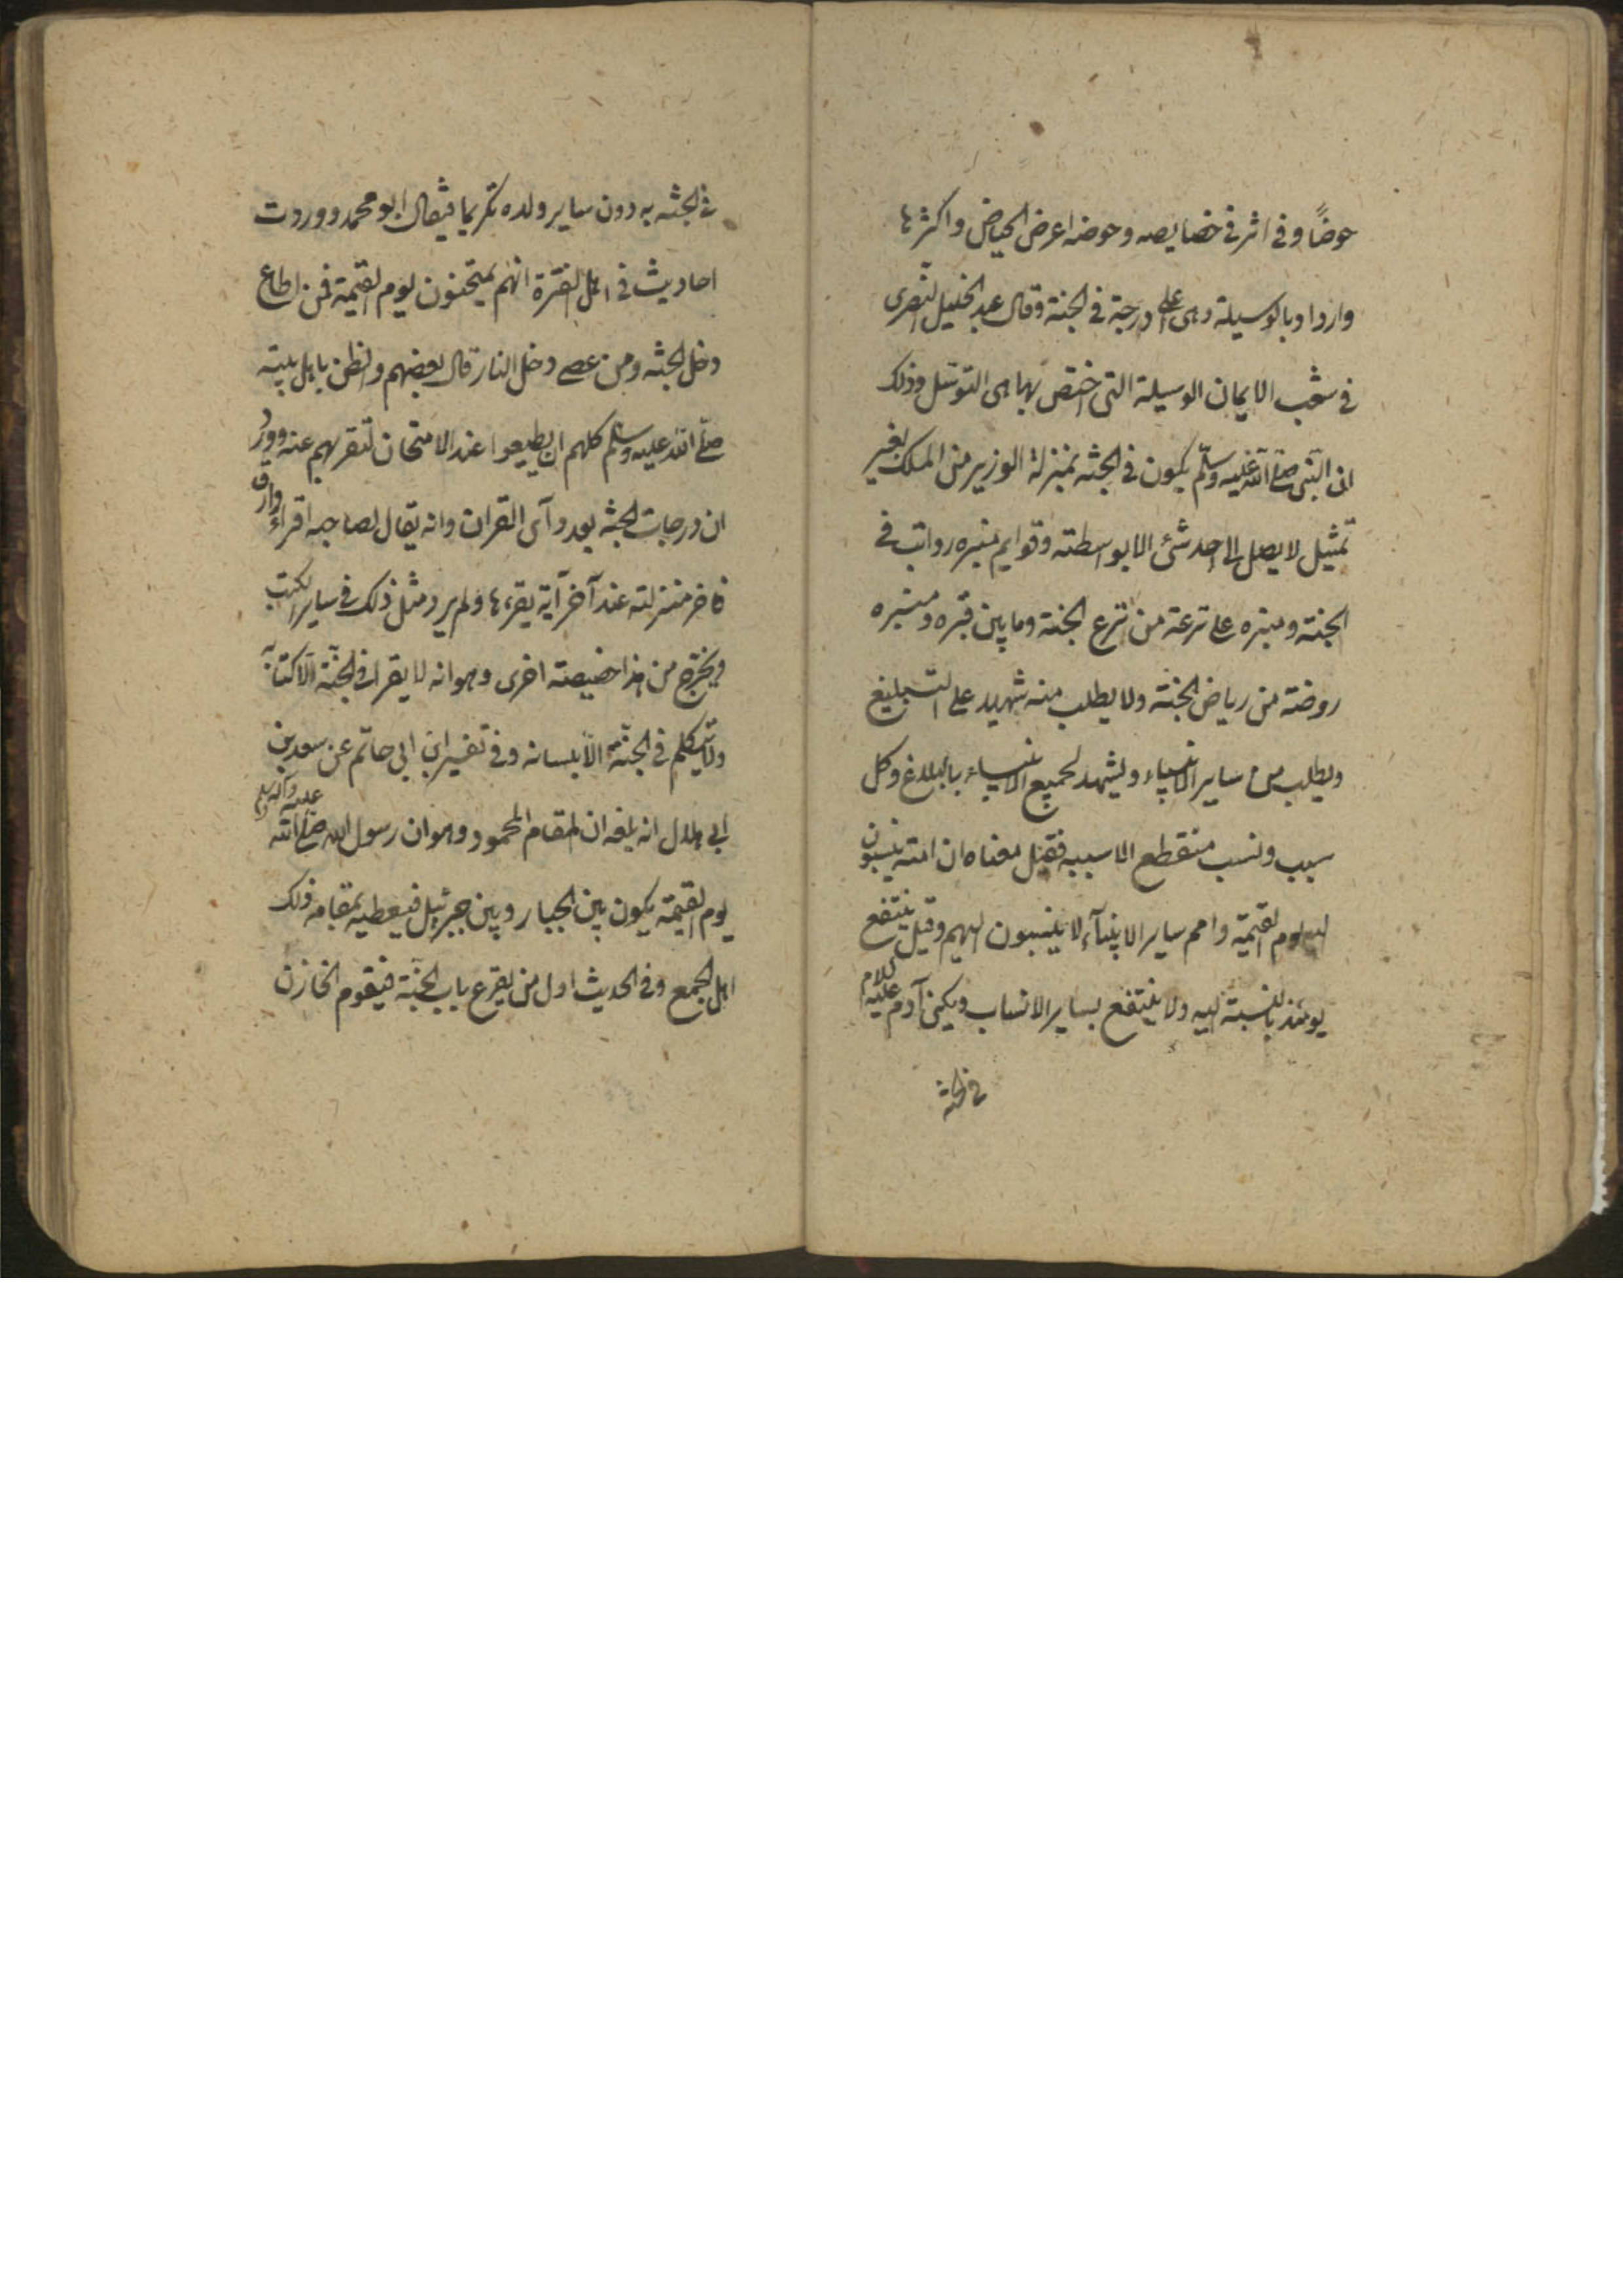 حوضاً وفى اثر فى خصايصه وحوضه اعرض الحياض واكثرها
واردا وبالوسيلة وهى اعلى درجة فى الجنة وقال عبد الجليل القصرى
فى شعب الايمان الوسيلة التى اختص بها هى التوسل وذلك
ان النبى صلى الله عليه وسلم يكون فى الجنه بمنزلة الوزير من الملك بغير
تمثيل لا يصل الى احد شئ الا بواسطته وقوايم منبره رواتب فى
الجنة ومنبره على ترعة من ترع الجنة وما بين قبره ومنبره
روضة من رياض الجنة ولا يطلب منه شهيد على التبليغ
ويطلب من ساير الانبياء ويشهد لجميع الانبياء بالبلاغ وكل
سبب ونسب منقطع الا سببه فقيل معناه ان امته ينسبون
اليه يوم القيمة وامم ساير الانبيآء لا ينسبون اليهم وقيل ينتفع
يومئذ بالنسبة اليه ولا ينتفع بساير الانساب ويكنى آدم عليه السلام
فى الجنة
فى الجنه به دون ساير ولده تكريما فيقال ابو محمد ووردت
احاديث فى اهل الفترة انهم يمتحنون يوم القيمة فمن اطاع
دخل الجنه ومن عصى دخل النار قال بعضهم والظن باهل بيته
صلى الله عليه وسلم كلهم ان يطيعوا عند الامتحان لتقر بهم عنه وورد
ان درجات الجنه بعدد آى القران وانه يقال لصاحبه اقراء وارق
فاخر منزلته عند آخر آية يقرءها ولم يرد مثل ذلك فى ساير الكتب
ويخرج من هذا خصيصة اخرى وهو انه لا يقرا فى الجنة الا كتابه
ولا يتكلم فى الجنة الا بلسانه وفى تفسير ابن ابى حاتم عن سعد بن
ابى هلال انه بلغه ان المقام المحمود وهو ان رسول الله صلى الله عليه وآله وسلم
يوم القيمة يكون بين الجبار وبين جبرئيل فيغبطه بمقامه ذلك
اهل الجمع وفى الحديث اول من يقرع باب الجنة فيقوم الخازن